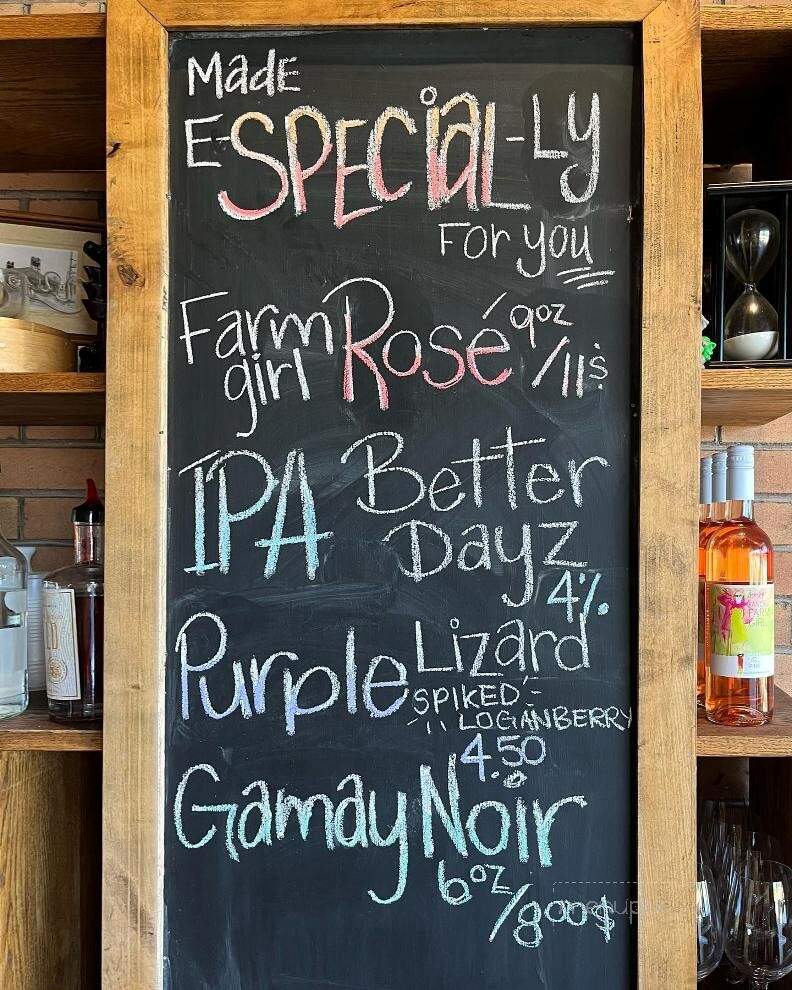 Made
E-SPECiaL-Ly
For you
Farm girl Rosé 9oz/11$
IPA Better Dayz
4%
Purple Lizard
SPIKED
LOGANBERRY
4.50
Gamay Noir
6oz/800$